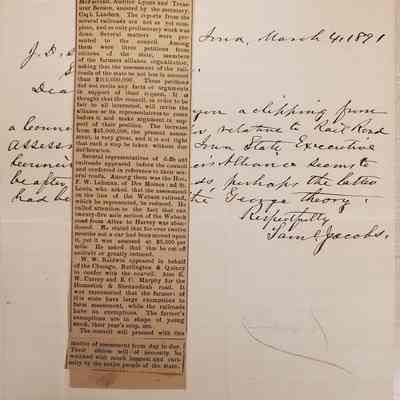 Iowa, March 4, 1891
J. D.
Dear
you a clipping from
relative to Rail Road
Assess Iowa State Executive
Alliance seems to
be after perhaps the latter
had be the George theory.
Respectfully
Saml Jacobs.
McFarland, Auditor Lyons and Treas-
urer Beeson, assisted by the secretary,
Capt. Landers. The reports from the
several railroads are not as yet com-
plete, and so only preliminary work was
done. Several matters were pre-
sented to the council. Among
them were three petitions from
citizens of the state, members
of the farmers alliance organization,
asking that the assessment of the rail-
roads of the state be not less in amount
than
These petitions
did not recite any facts or arguments
in support of their request. It is
thought that the council, in order to be
fair to all interested, will invite the
alliance or its representatives to come
before it and make argument in sup-
port of their position. The increase
from $45,000,000, the present assess-
ment, is very great, and it is not right
that such a step be taken without due
deliberation.
Several representatives of different
railroads appeared before the council
and conferred in reference to their sev-
eral roads. Among them was the Hon.
of Des Moines and St.
Louis, who asked that the assessment
on the line of the Wabash railroad,
which he represented, be reduced. He
called attention to the fact that the
twenty-five mile section of the Wabash
road from Albia to Harvey was aban-
doned. He stated that for over twelve
months not a car had been moved upon
it, yet it was assessed at $3,000 per
mile. He asked that this be cut off
entirely or greatly reduced.
W. W. Baldwin appeared in behalf
of the Chicago, Burlington & Quincy
to confer with the council. Also E.
W. Currey and E. C. Murphy for the
Humeston & Shenandoah road. It
was represented that the farmers of
the state have large exemptions to
farm assessment, while the railroads
have no exemptions. The farmer's
exemptions are in shape of young
stock, their year's crop, etc.
The council will proceed with this
matter of assessment from day to day.
Their action will of necessity be
watched with much interest and curi-
osity by the entire people of the state.